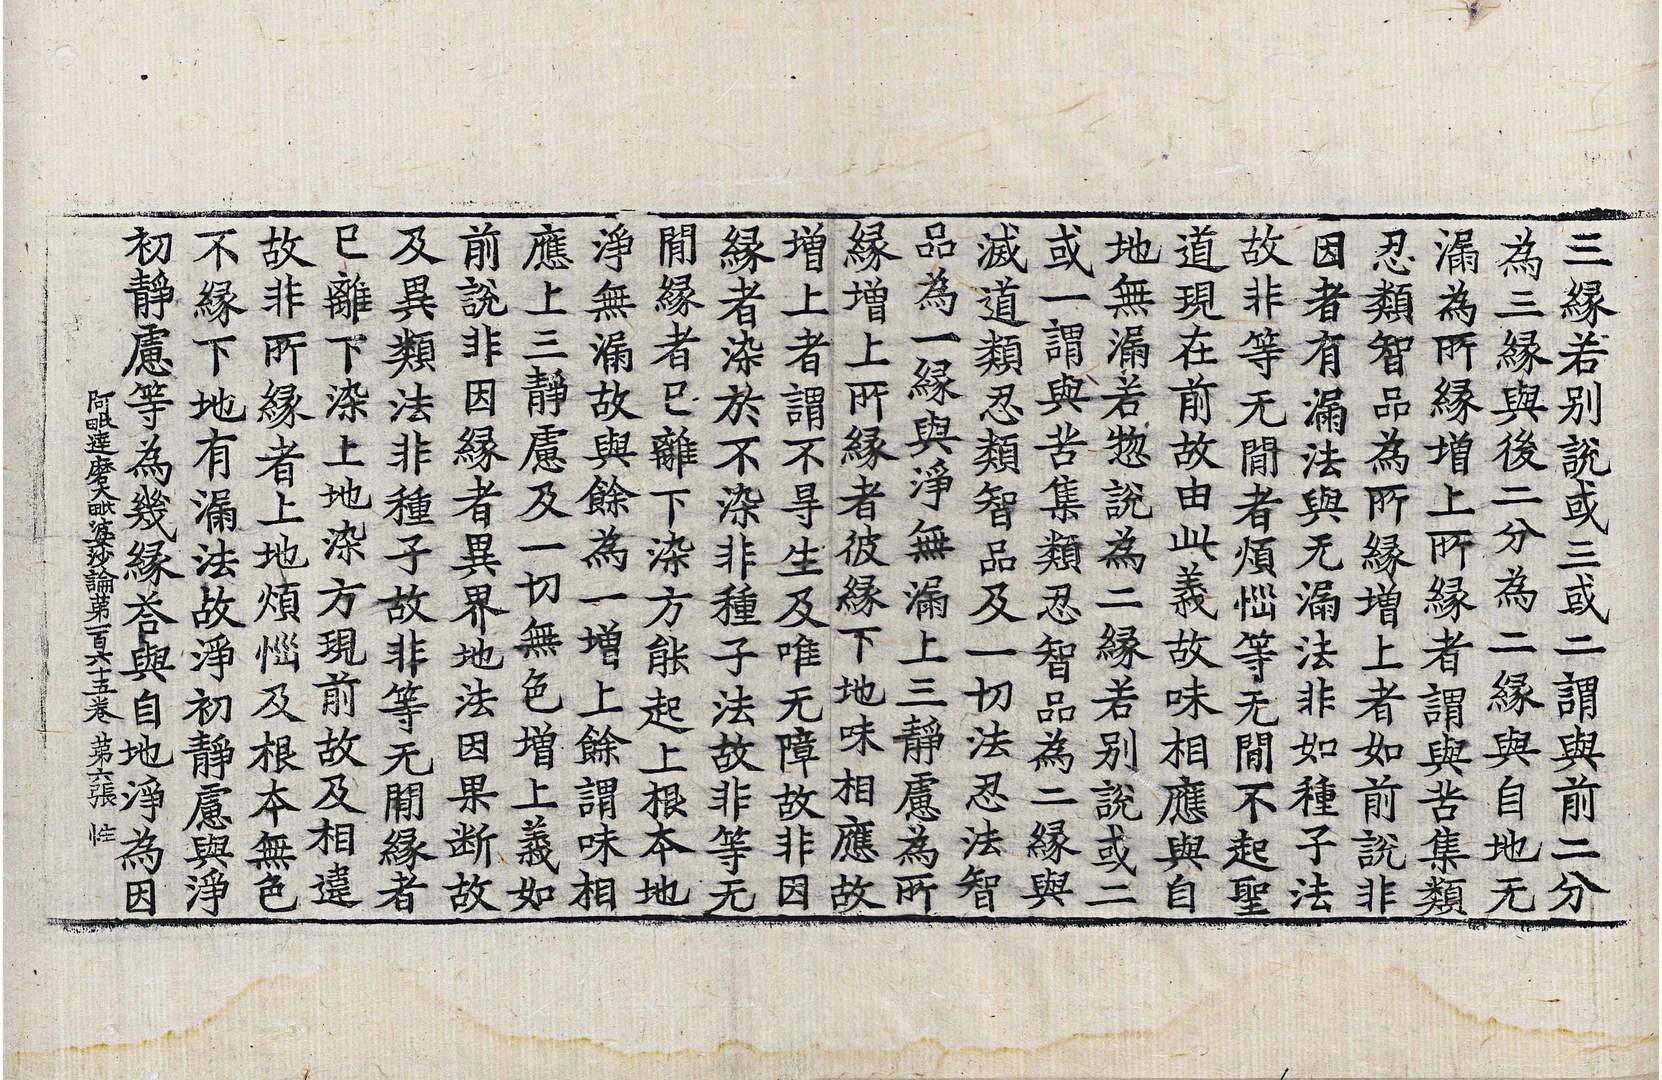 三緣若別說或三或二謂與前二分
為三緣與後二分為二緣與自地无
漏為所緣增上所緣者謂與苦集類
忍類智品為所緣增上者如前說非
因者有漏法與无漏法非如種子法
故非等无閒者煩惱等无閒不起聖
道現在前故由此義故味相應與自
地無漏若惣說為二緣若別說或二
或一謂與苦集類忍智品為二緣與
滅道類忍類智品及一切法忍法智
品為一緣與淨無漏上三靜慮為所
緣增上所緣者彼緣下地味相應故
增上者謂不㝵生及唯无障故非因
緣者染於不染非種子法故非等无
閒緣者已離下染方能起上根本地
淨無漏故與餘為一增上餘謂味相
應上三靜慮及一切無色增上義如
前說非因緣者異界地法因果断故
及異類法非種子故非等无閒緣者
已離下染上地染方現前故及相違
故非所緣者上地煩惱及根本無色
不緣下地有漏法故淨初靜慮與淨
初靜慮等為幾緣荅與自地淨為因
阿毗達磨大毗婆沙論第一百六十五卷 第六張 性